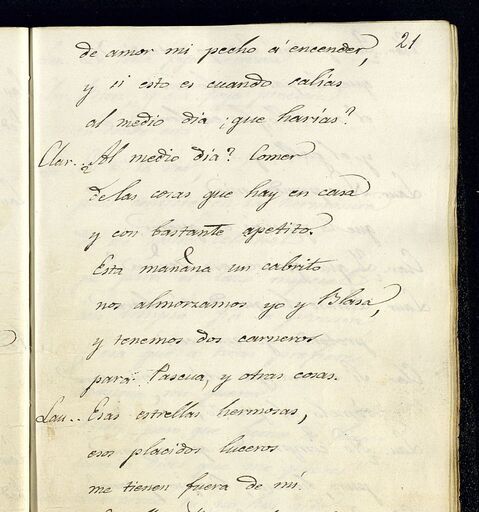 21
de amor mi pecho á encender,
y si esto es cuando salías
al medio dia ¿que harías?
Clar. Al medio dia? Comer
de las cosas que hay en casa
y con bastante apetito.
Esta mañana un cabrito
nos almorzamos yo y Blasa,
y tenemos dos carneros
para Pascua, y otras cosas.
Lau.. Esas estrellas hermosas,
esos placidos luceros
me tienen fuera de mí.